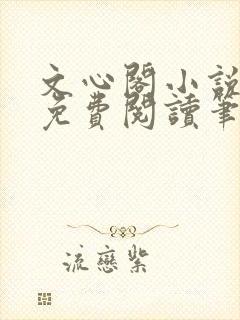 文心閣小說
免費閱讀筆
流戀紫